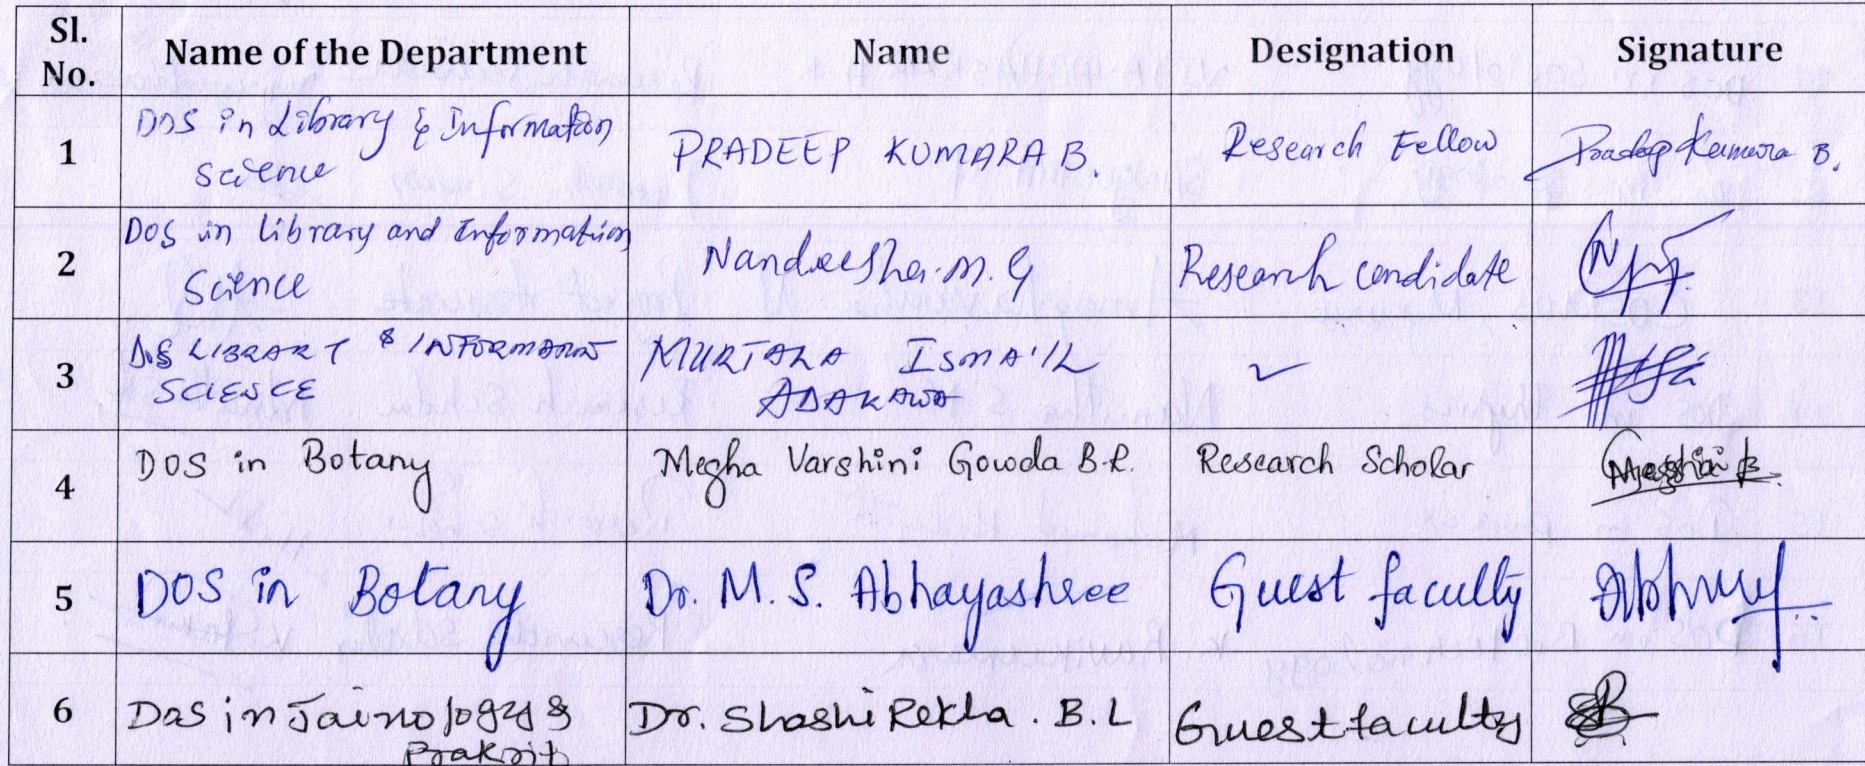 Sl. No. Name of the Department Name Designation Signature
1 DOS in Library & Information Science PRADEEP KUMARA B. Research Fellow Pradeep Kumara B.
2 DOS in library and Information Science Nandeesha.M.G Research candidate
3 DOS LIBRARY & INFORMATION SCIENCE MURTALA ISMA'IL ADAKAWA ✓
4 DOS in Botany Megha Varshini Gowda B.R. Research Scholar
5 DOS in Botany Dr. M. S. Abhayashree Guest faculty
6 Dos in Jainology & Prakrit Dr. Shashi Rekha . B. L Guest faculty